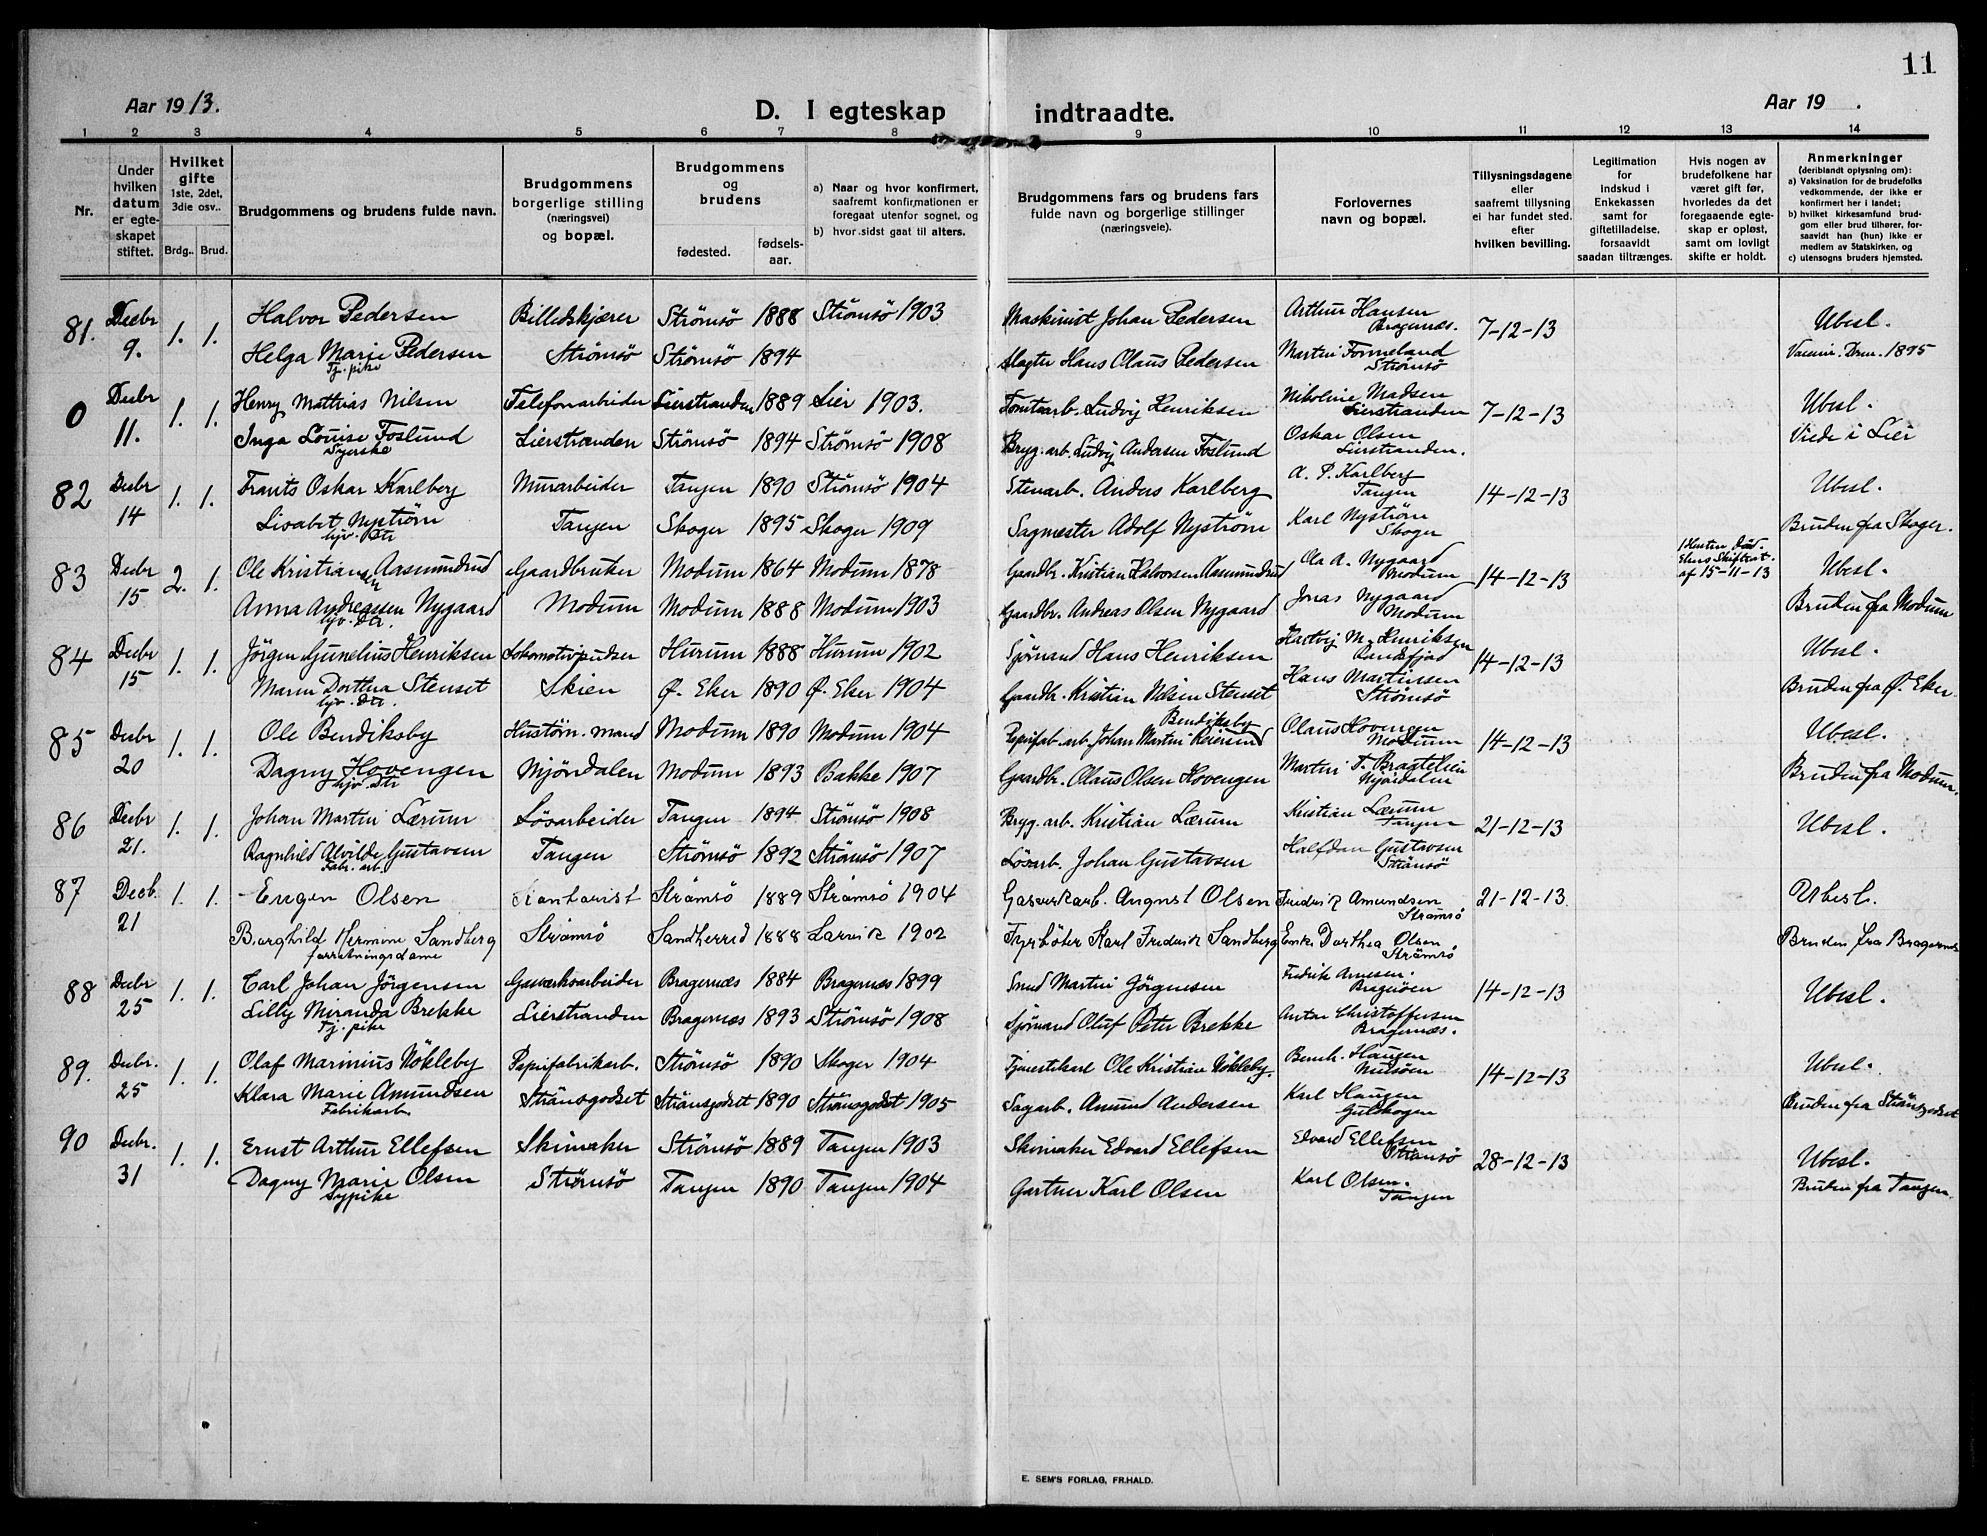 11
Aar 1913.
D. I egteskap indtraadte.
Aar 19 .
1 2 3 4 5 6 7 8 9 10 11 12 13 14
Nr.
Under hvilken datum er egteskapet stiftet.
Hvilket gifte 1ste, 2det, 3die osv..
Brdg.. Brud.
Brudgommens og brudens fulde navn.
Brudgommens borgerlige stilling (næringsvei) og bopæl.
Brudgommens og brudens
fødested. fødsels-aar.
a) Naar og hvor konfirmert, saafremt konfirmationen er foregaat utenfor sognet, og
b) hvor sidst gaat til alters.
Brudgommens fars og brudens fars fulde navn og borgerlige stillinger (næringsveie).
Forlovernes navn og bopæl.
Tillysningsdagene eller saafremt tillysning ei har fundet sted. efter hvilken bevilling.
Legitimation for Indskud i Enkekassen samt for giftetilladelse, forsaavidt saadan tiltrænges.
Hvis nogen av brudefolkene har været gift før, hvorledes da det foregaaende egteskap er opløst, samt om lovligt skifte er holdt.
Anmerkninger (deriblandt oplysning om):
a) Vaksination for de brudefolks vedkommende, der ikke er konfirmert her i landet;
b) hvilket kirkesamfund brudgom eller brud tilhører, forsaavidt han (hun) ikke er medlem av Statskirken, og
c) utensogns bruders hjemsted.
81. Decbr 9. 1. 1. Halvor Pedersen Billedskjærer Strömsö 1888 Strömsö 1903 Maskinist Johan Pedersen Arthur Hansen Bragernæs. 7-12-13 Ubesl.
Helga Marie Pedersen Tj. pike Strömsö Strömsö 1894 Slagter Hans Olaus Pedersen Martin Fonneland Strömsö Vaccin. Drm. 1895
0 Decbr 11. 1. 1. Henry Mathias Nilsen Telefonarbeider Lierstranden 1889 Lier 1903. Tomtearb. Ludvig Henriksen Nikoline Madsen Lierstranden 7-12-13 Ubesl.
Inga Louise Foslund Syerske Lierstranden Strömsö 1894 Strömsö 1908 Bryg. arb. Ludvig Andersen Foslund Oskar Olsen Lierstranden. Viede i Lier
82 Decbr 14 1. 1. Frants Oskar Karlberg Murarbeider Tangen 1890 Strömsö 1904 Stenarb. Anders Karlberg A. P. Karlberg Tangen 14-12-13 Ubesl.
Lisabet Nyström hjv. Dtr Tangen Skoger 1895 Skoger 1909 Sagmester Adolf Nyström Karl Nyström Skoger Bruden fra Skoger.
83 Decbr 15 2. 1. Ole Kristiansen Aasmundrud Gaardbruker Modum 1864 Modum 1878 Gaardbr. Kristian Halvorsen Aasmundrud Ola A. Nygaard Modum 14-12-13 1 Hustru död. Ekers Skifteat. af 15-11-13 Ubesl.
Anna Andreassen Nygaard hjv. Dtr. Modum Modum 1888 Modum 1903 Gaardbr. Andreas Olsen Nygaard Jonas Nygaard Modum Bruden fra Modum
84 Decbr 15 1. 1. Jörgen Gunelius Henriksen Lokomotivpudser Hurum 1888 Hurum 1902 Sjömand Hans Henriksen Hartvig M. Henriksen Randsfjord 14-12-13 Ubesl.
Maren Dorthea Stenset hjv. Dtr. Skien Ø. Eker 1890 Ø. Eker 1904 Gaardbr. Kristian Nilsen Stenset Hans Martinsen Strömsö Bruden fra Ø. Eker
85 Decbr 20 1. 1. Ole Bendiksby Hustöm. mand Modum 1890 Modum 1904 Papirfab. arb. Johan Martin Reiersen Bendiksby Olaus Hovengen Modum 14-12-13 Ubesl.
Dagny Hovengen hjv. Dtr Mjöndalen Modum 1893 Bakke 1907 Gaardbr. Olaus Olsen Hovengen Martin T. Mjöndalen Bruden fra Modum.
86 Decbr 21. 1. 1. Johan Martin Lærum Lösarbeider Tangen 1894 Strömsö 1908 Bryg. arb. Kristian Lærum Kristian Lærum Tangen 21-12-13 Ubesl.
Ragnhild Alvilde Gustavsen Fabr. arb. Tangen Strömsö 1892 Strömsö 1907 Lösarb. Johan Gustavsen Halfdan Gustavsen Strömsö
87 Decb. 21 1. 1. Eugen Olsen Kontorist Strömsö 1889 Strömsö 1904 Gasverkarb. August Olsen Fredrik Amundsen Strömsö 21-12-13. Ubesl.
Borghild Hermine Sandberg forretningsdame Strömsö Sandherred 1888 Larvik 1902 Fyrböter Karl Fredrik Sandberg Enke Dorthea Olsen, Strömsö Bruden fra Bragernes
88 Decbr 25 1. 1. Carl Johan Jörgensen Gasværksarbeider Bragernæs 1884 Bragernæs 1899 Smed Martin Jörgensen Fredrik Arnesen. Bragerøen 14-12-13 Ubesl.
Lilly Miranda Brekke Tj. pike Lierstranden Bragernæs 1893 Strömsö 1908 Sjömand Oluf Peter Brekke Anton Christoffersen Bragernæs.
89. Decbr. 25 1. 1. Olaf Marinius Nökleby Papirfabrikarb. Strömsö 1890 Skoger 1904 Tjenestekarl Ole Kristian Nökleby. Bernh. Haugen 14-12-13 Ubesl.
Klara Marie Amundsen Fabrikarb. Strömsgodset Strömsgodset 1890 Strömsgodset 1905 Sagarb. Amund Andersen Karl Haugen Gulskogen Bruden fra Strömsgodset
90 Decbr. 31 1. 1. Ernst Arthur Ellefsen Skimaker Strömsö 1889 Tangen 1903 Skimaker Edvard Ellefsen Edvard Ellefsen Strömsö 28-12-13 Ubesl.
Dagny Marie Olsen Sypike Strömsö Tangen 1890 Tangen 1904 Gartner Karl Olsen Karl Olsen. Tangen Bruden fra Tangen.
E. SEM'S FORLAG, FR.HALD.